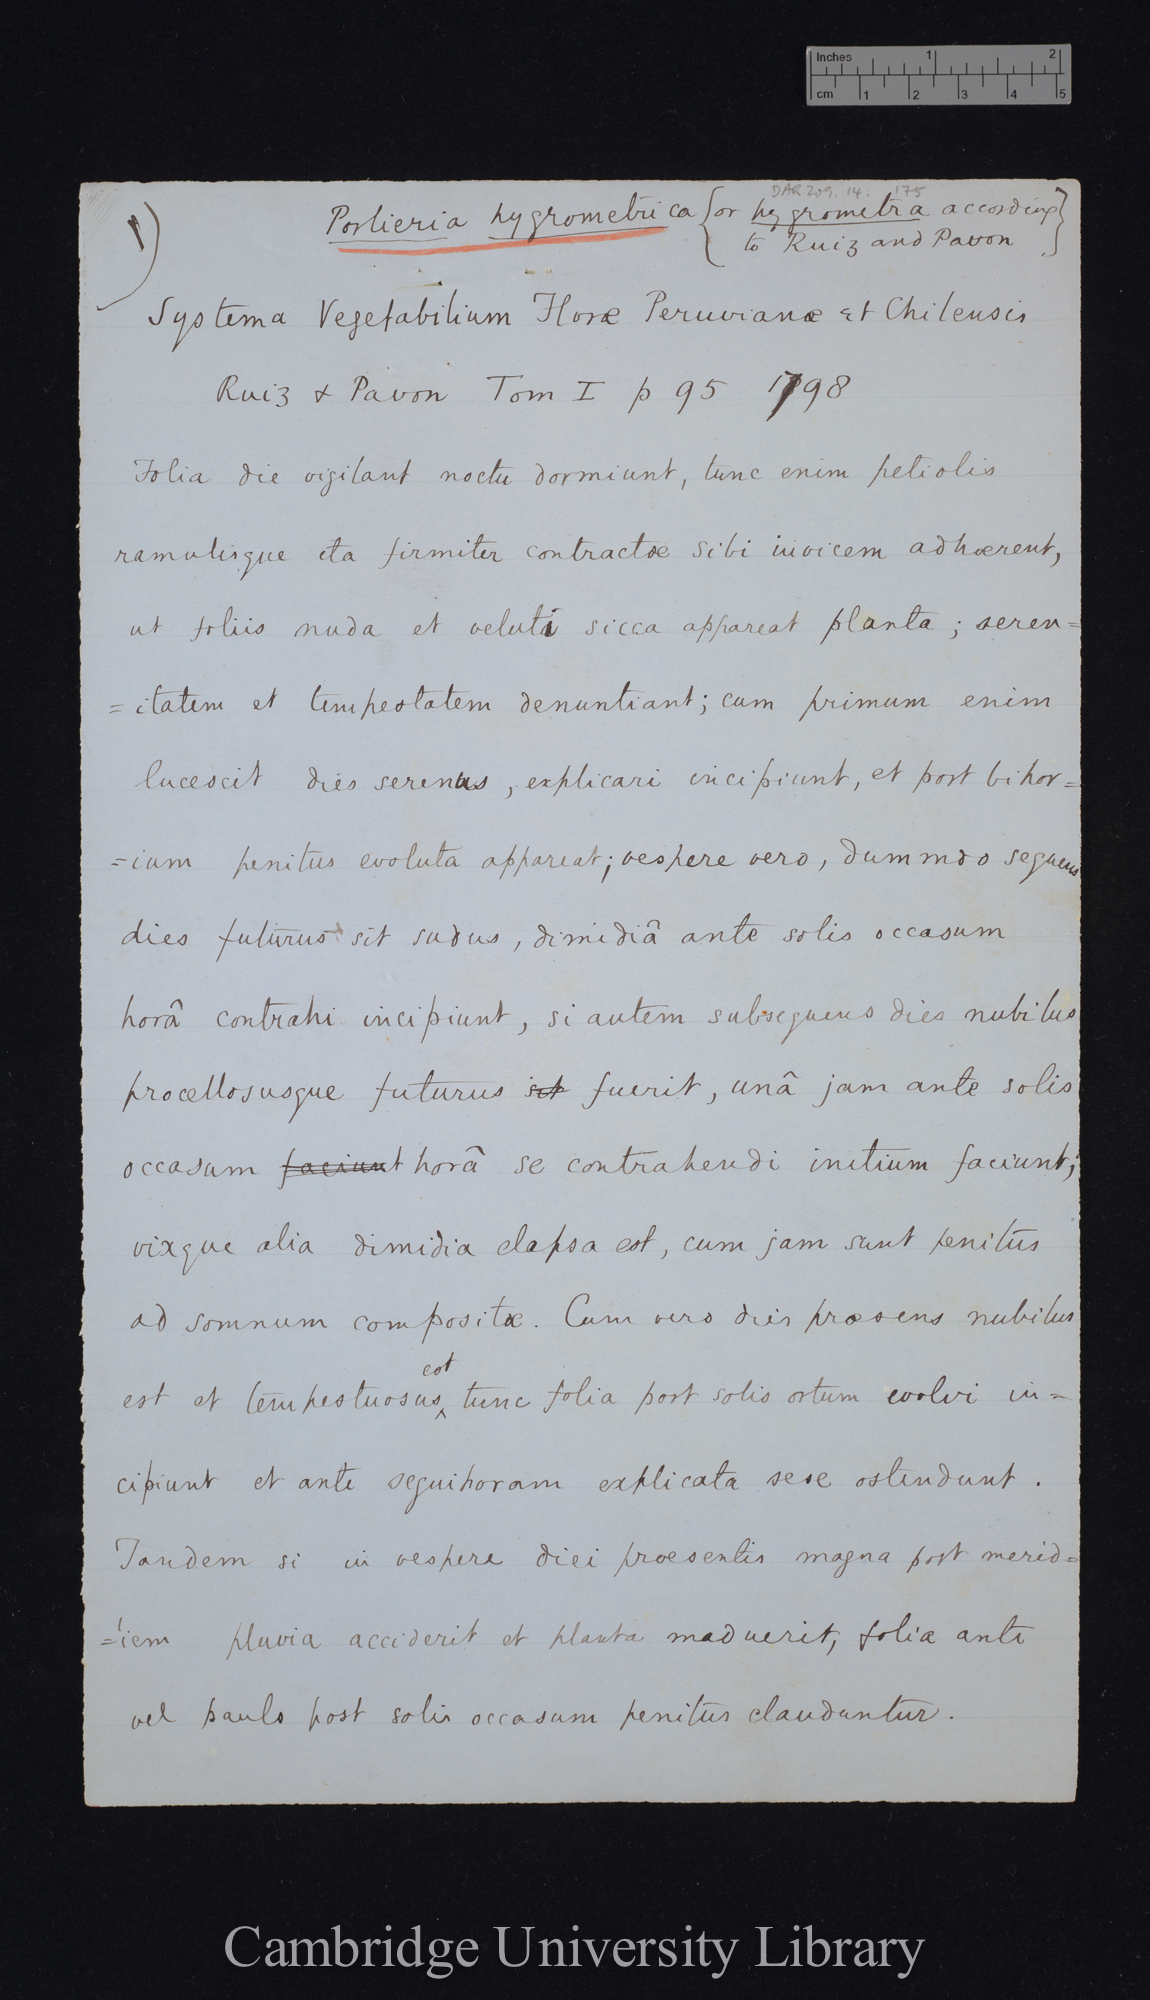 Inches 1 2
cm 1 2 3 4 5
DAR 209. 14: 175
1) Porlieria hygrometrica {or hygrometra according
to Ruiz and Pavon}
Systema Vegetabilium Floræ Peruvianæ et Chilensis
Ruiz & Pavon Tom I p 95 1798
Folia die vigilant noctu dormiunt, tunc enim petiolis
ramulisque ita firmiter contractæ sibi invicem adhærent,
ut foliis nuda et veluti sicca appareat planta; seren=
=itatem et tempestatem denuntiant; cum primum enim
lucescit dies serenus, explicari incipiunt, et post bihor=
=ium penitus evoluta appareat; vespere vero, dummdo sequens
dies futurus sit sudus, dimidiâ ante solis occasum
horâ contrahi incipiunt, si autem subsequens dies nubilus
procellosusque futurus sit fuerit, unâ jam ante solis
occasum faciunt horâ se contrahendi initium faciunt;
vixque alia dimidia elapsa est, cum jam sunt penitus
ad somnum compositæ. Cum vero dies præsens nubilus
est
est et tempestuosus^ tunc folia post solis ortum evolvi in=
cipiunt et ante sequihoram explicata sese ostendunt.
Tandem si in vespere diei præsentis magna post merid=
=iem pluvia acciderit et planta maduerit, folia ante
vel paulo post solis occasum penitus clauduntur.
Cambridge University Library